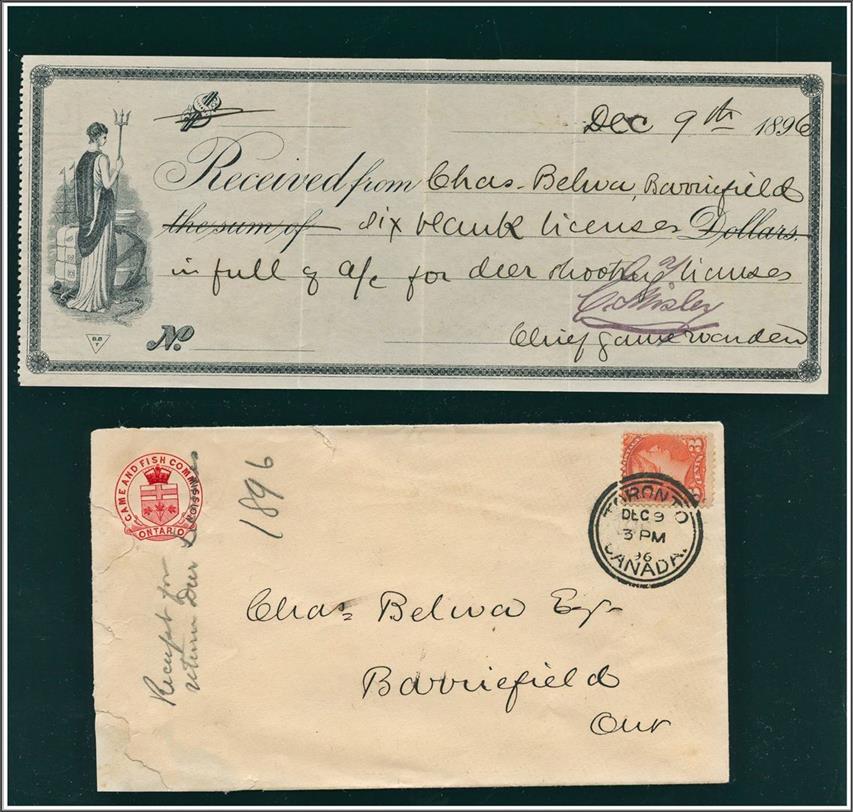 Dec 9th 1896
Received from Chas. Belwa, Barriefield
the sum of six blank licenses Dollars.
in full of a/c for deer shooting licenses
Chief game warden
No.
GAME AND FISH COMMISSION
ONTARIO
Receipt for
return Deer
1896
3
TORONTO
DEC 9
3 PM
96
CANADA.
Chas Belwa Esq
Barriefield
Ont